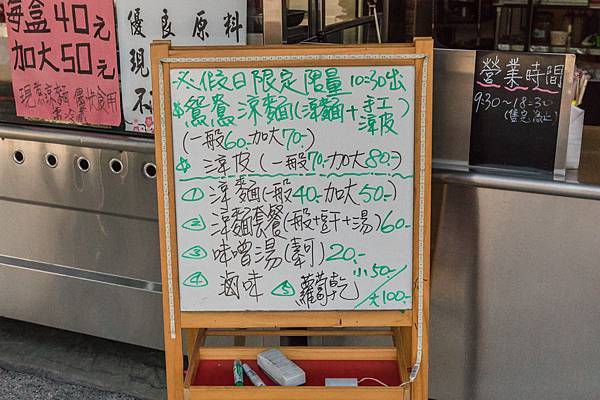 每盒40元
加大50元
現煮涼麵 儘快食用
優良原料
現
不
※假日限定限量 10:30出
鴛鴦涼麵(涼麵+手工涼皮
(一般60.加大70.-)
涼皮(一般70.加大80.-)
① 涼麵(一般40.-加大50.-)
② 涼麵套餐(一般+豆干+湯)60.-
③ 味噌湯(素可)20.-
④ 滷味 ⑤ 蘿蔔乾 小50.-/大100.-
營業時間
9:30~18:30
(售完為止)